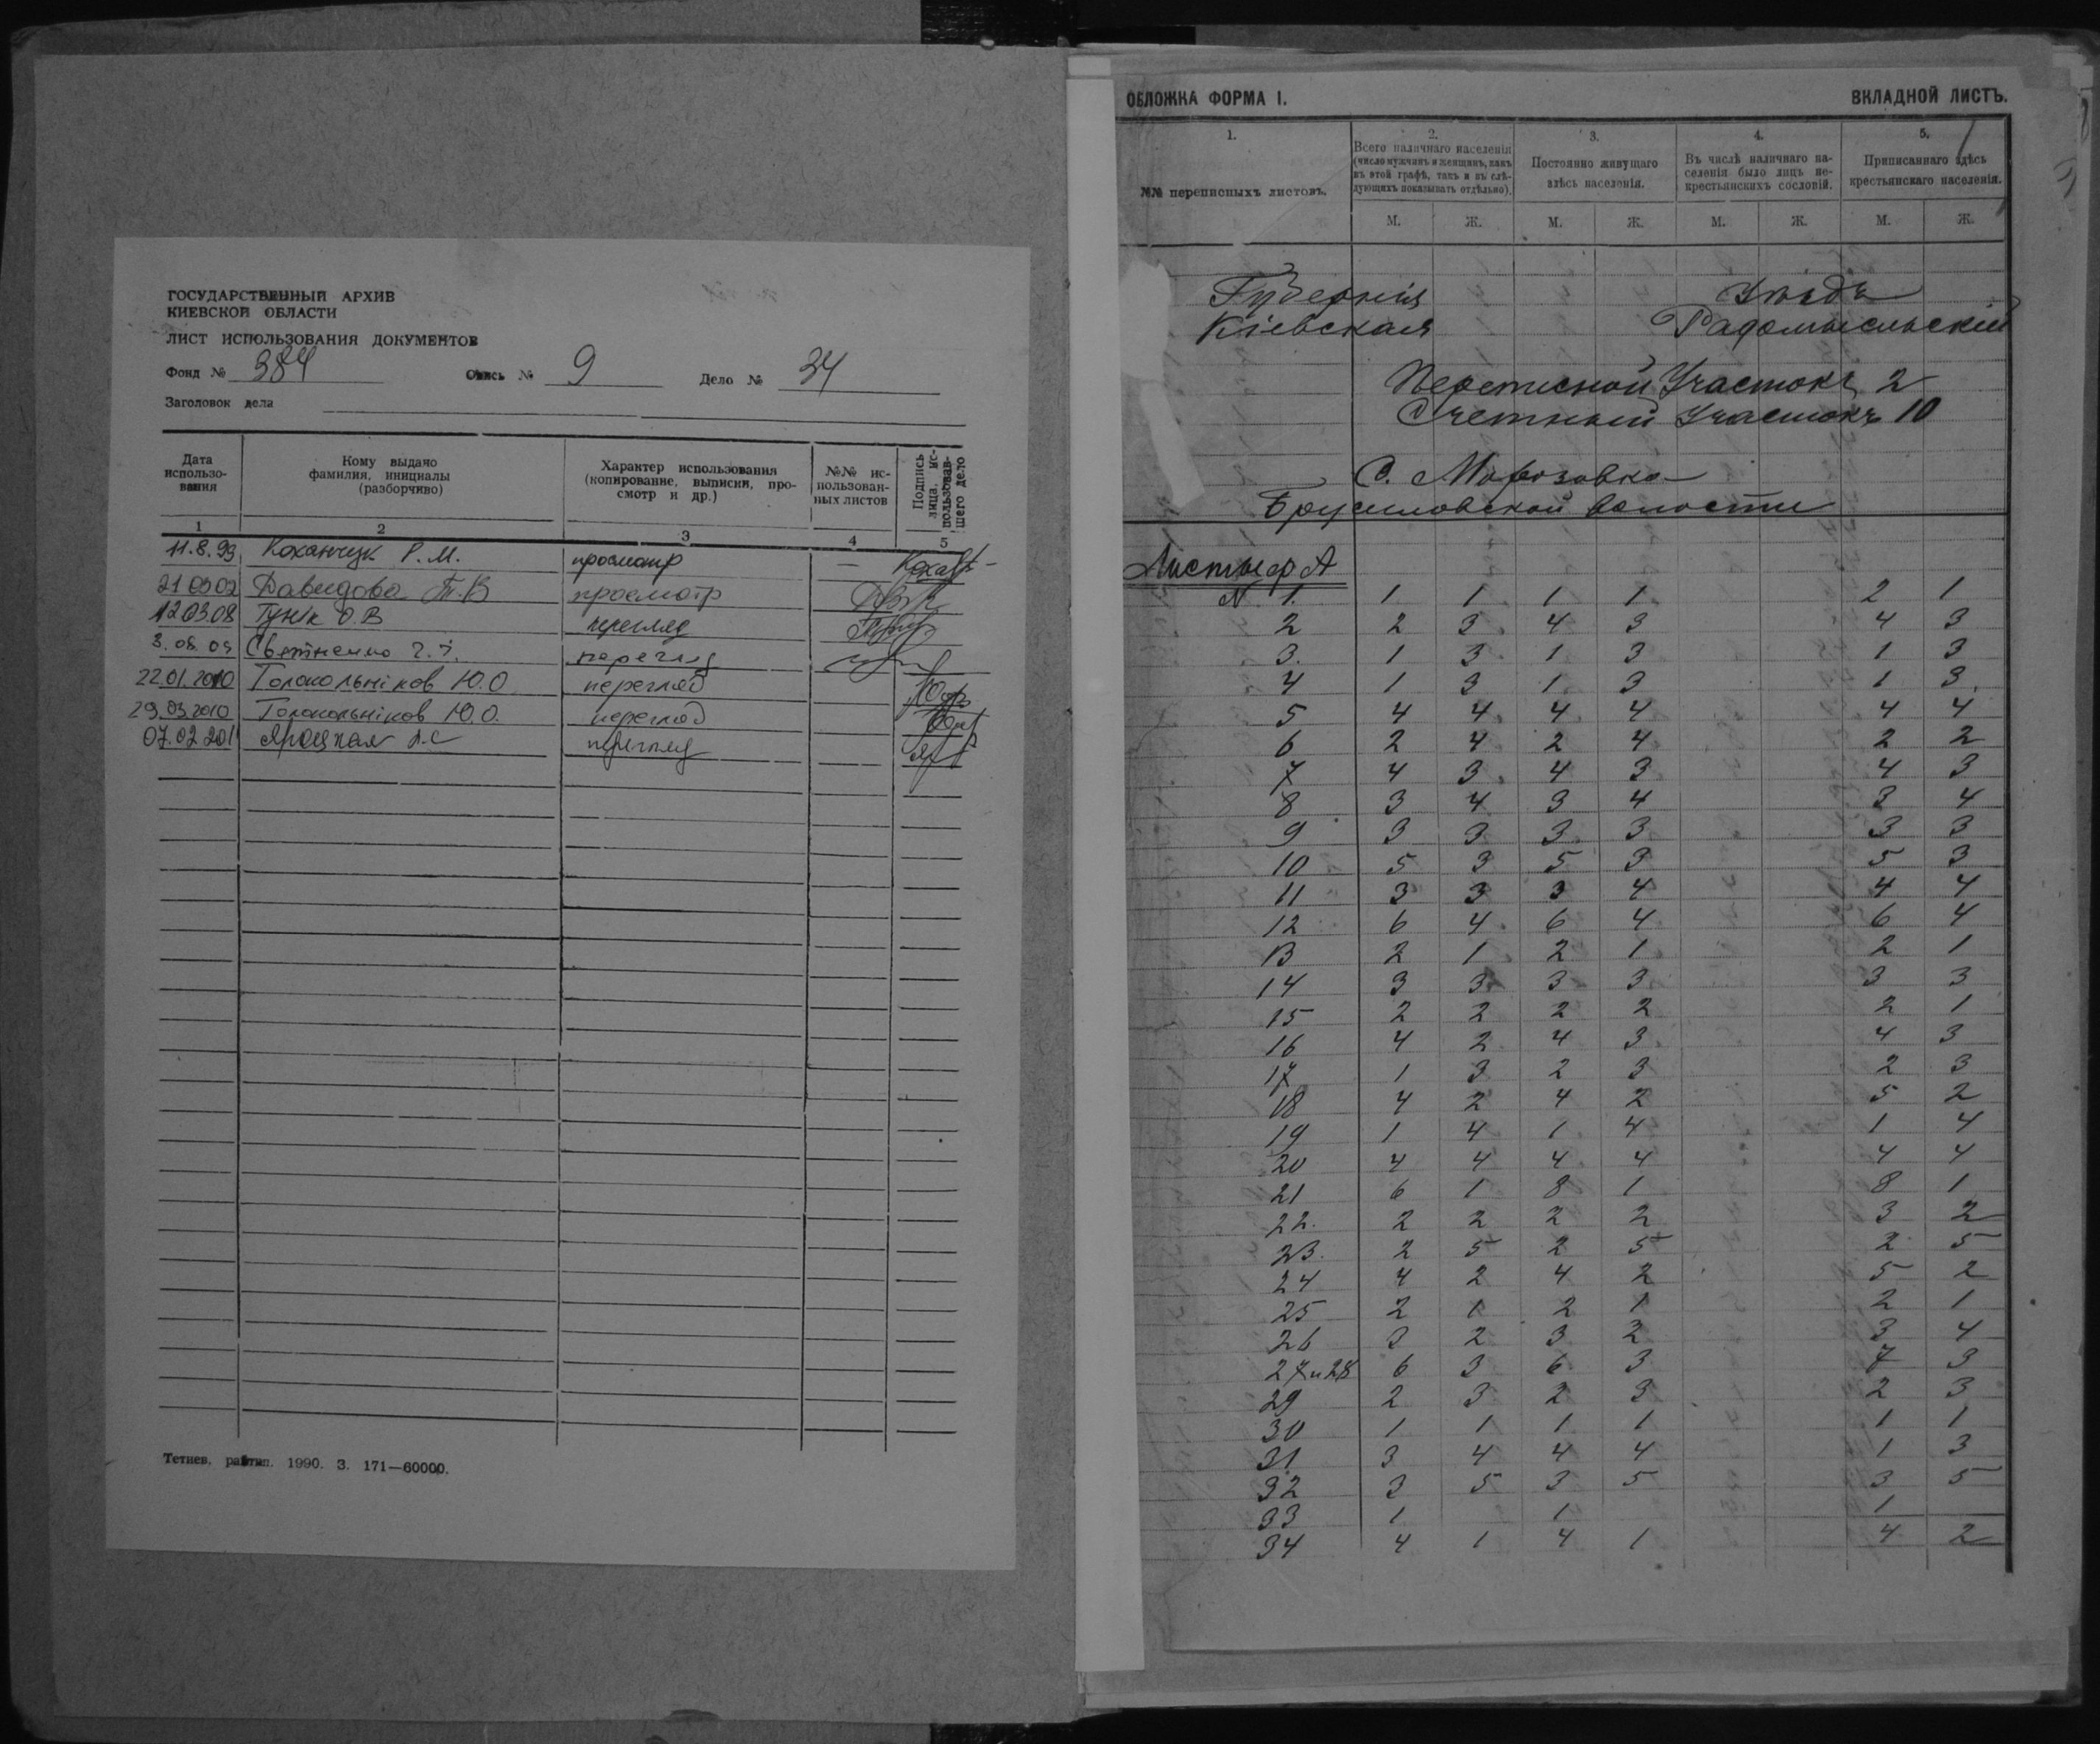 ГОСУДАРСТВЕННЫЙ АРХИВ
КИЕВСКОЙ ОБЛАСТИ
ЛИСТ ИСПОЛЬЗОВАНИЯ ДОКУМЕНТОВ
Фонд № 384 Опись № 9 Дело № 34
Заголовок дела
Дата использо-вания | Кому выдано фамилия, инициалы (разборчиво) | Характер использования (копирование, выписки, про-смотр и др.) | №№ ис-пользован-ных листов | Подпись лица, ис-пользовав-шего дело
1 2 3 4 5
11.8.99 Коханчук Р. М. просмотр —
21 03 02 Давидова Т.В просмотр
12.03.08 Тунік О.В перегляд
3.08.09 перегляд
22.01.2010 Голокольніков Ю.О. перегляд
29.03.2010 Голокольніков Ю.О. перегляд
07.02 2011 Яроцкая перегляд
Тетиев. райтип. 1990. З. 171—60000.
ОБЛОЖКА ФОРМА I. ВКЛАДНОЙ ЛИСТЪ.
1. 2. 3. 4. 5.
№№ переписныхъ листовъ. | Всего наличнаго населенія (число мужчинъ и женщинъ, какъ въ этой графѣ, такъ и въ слѣ-дующихъ показывать отдѣльно). | Постоянно живущаго здѣсь населенія. | Въ числѣ наличнаго на-селенія было лицъ не-крестьянскихъ сословій. | Приписаннаго здѣсь крестьянскаго населенія.
М. Ж. М. Ж. М. Ж. М. Ж.
Губернія Уѣздъ
Кіевская Радомысльскій
Переписной Участокъ 2
Счетный Участокъ 10
С. Морозовка
Брусиловской волости
Листы ф А
N 1. 1 1 1 1 2 1
2 2 3 4 3 4 3
3. 1 3 1 3 1 3
4 1 3 1 3 1 3
5 4 4 4 4 4 4
6 2 4 2 4 2 2
7 4 3 4 3 4 3
8 3 4 3 4 3 4
9 3 3 3 3 3 3
10 5 3 5 3 5 3
11 3 3 3 4 4 4
12 6 4 6 4 6 4
13 2 1 2 1 2 1
14 3 3 3 3 3 3
15 2 2 2 2 2 1
16 4 2 4 3 4 3
17 1 3 2 3 2 3
18 4 2 4 2 5 2
19 1 4 1 4 1 4
20 4 4 4 4 4 4
21 6 1 8 1 8 1
22. 2 2 2 2 3 2
23. 2 5 2 5 2 5
24 4 2 4 2 5 2
25 2 1 2 1 2 1
26 3 2 3 2 3 4
27 и 28 6 3 6 3 7 3
29 2 3 2 3 2 3
30 1 1 1 1 1 1
31 3 4 4 4 1 3
32 3 5 3 5 3 5
33 1 1 1
34 4 1 4 1 4 2